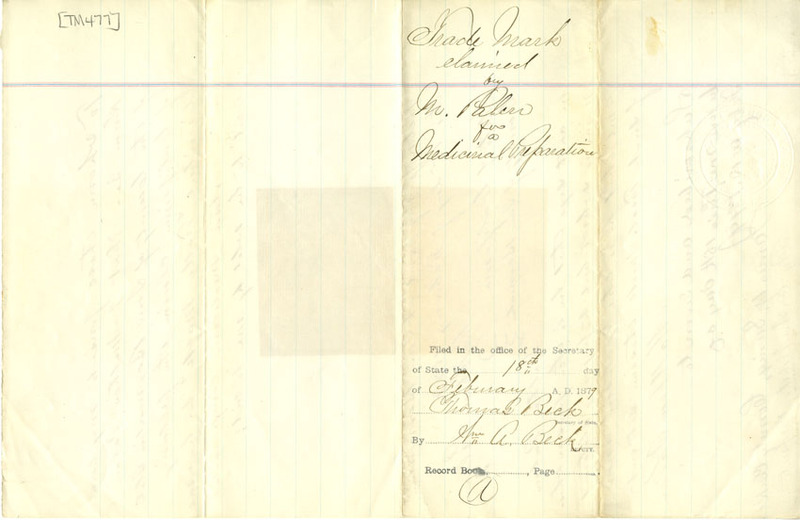 [TM477]
Trade Mark
claimed
by
M. Palen
for
a
Medicinal Preparation
Filed in the office of the Secretary
of State the 18th day
of February A. D. 1879
Thomas Beck
Secretary of State.
By Wm A. Beck
Deputy.
Record Book, Page
A